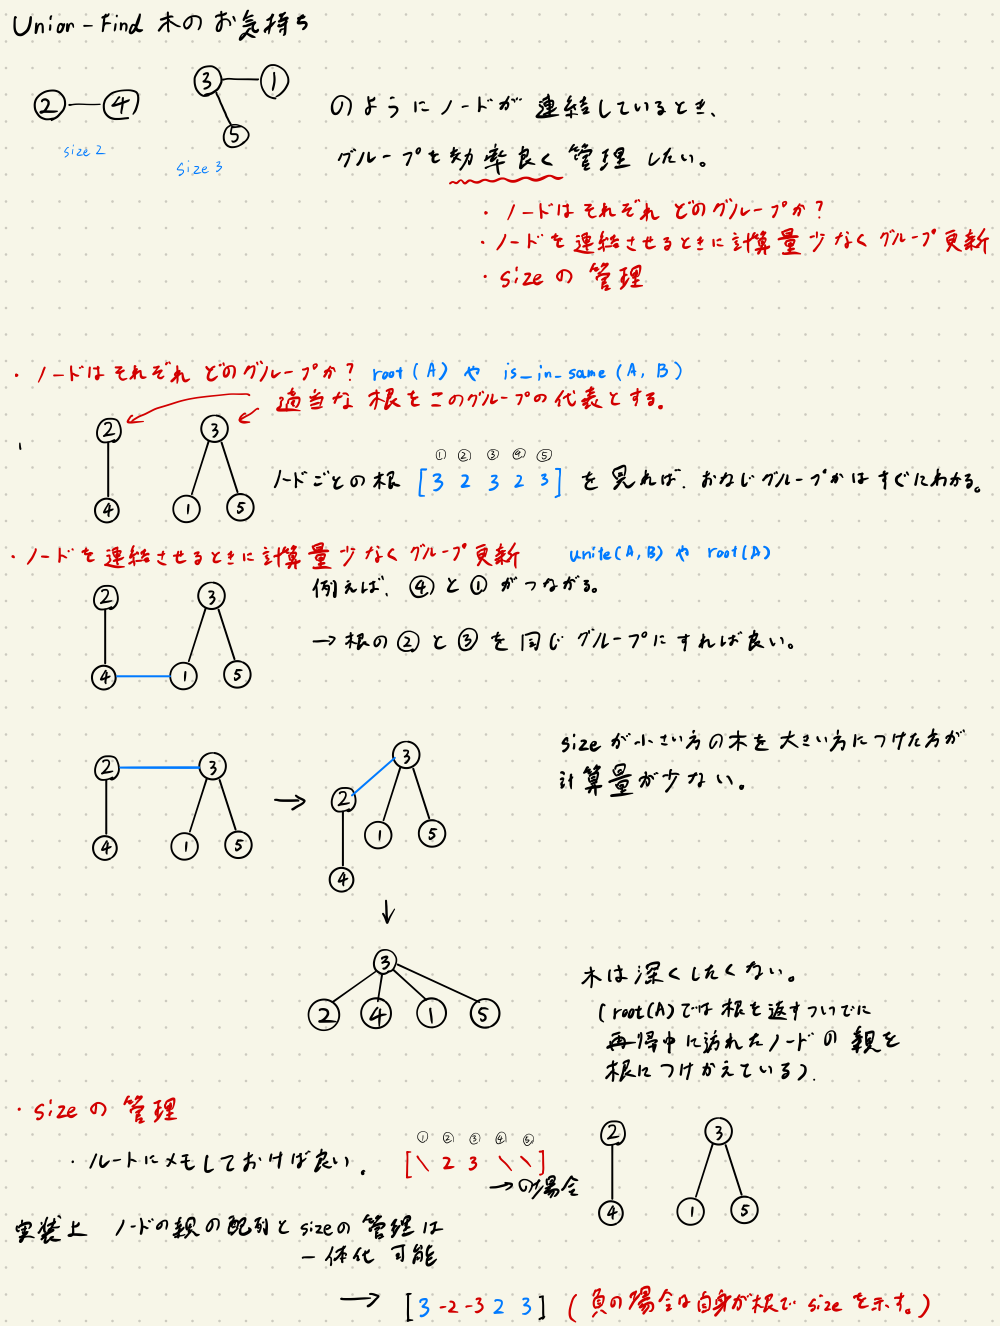 Union-Find 木のお気持ち
2 4 3 1 5
size 2
size 3
のようにノードが連結しているとき、
グループを効率良く管理したい。
・ノードはそれぞれどのグループか？
・ノードを連結させるときに計算量少なくグループ更新
・sizeの管理
・ノードはそれぞれどのグループか？ root(A) や is_in_same(A, B)
適当な根をこのグループの代表とする。
2 3
4 1 5
① ② ③ ④ ⑤
ノードごとの根 [3 2 3 2 3] を見れば、おなじグループかはすぐにわかる。
・ノードを連結させるときに計算量少なくグループ更新 unite(A,B) や root(A)
例えば、④と①がつながる。
2 3
→根の②と③を同じグループにすれば良い。
4 1 5
sizeが小さい方の木を大きい方につけた方が
計算量が少ない。
2 3 → 3
4 1 5
2 1 5
4
↓
3
2 4 1 5
木は深くしたくない。
(root(A)では根を返すついでに
再帰中に訪れたノードの親を
根につけかえている).
・sizeの管理
① ② ③ ④ ⑤
・ルートにメモしておけば良い. [\ 2 3 \ \]
→の場合
2 3
4 1 5
実装上 ノードの親の配列とsizeの管理は
一体化可能
→ [3 -2 -3 2 3] (負の場合は自身が根でsizeを示す。)